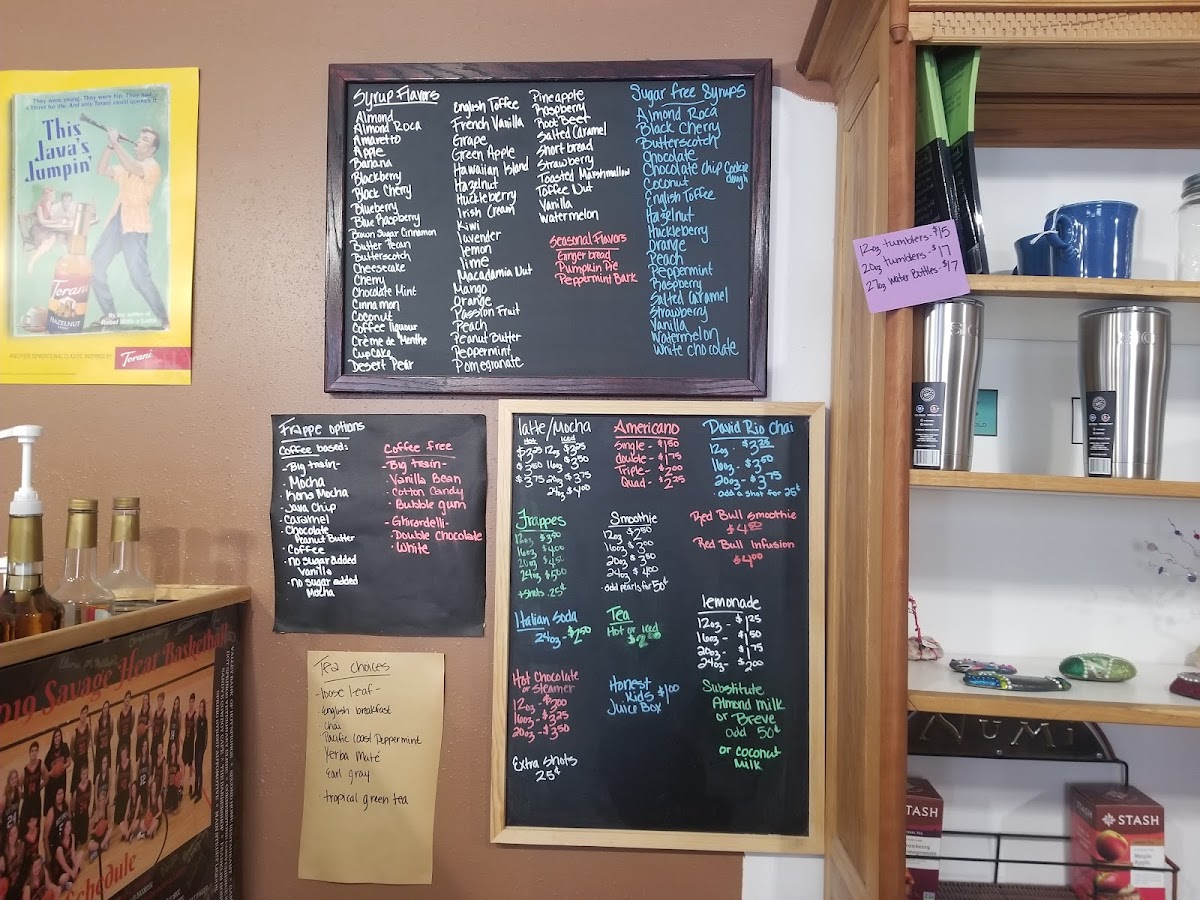 They were young. They were hip. They had
This
Java's
Jumpin'
Torani
HAZELNUT
By the author of
Torani
Syrup Flavors
Almond
Almond Roca
Amaretto
Apple
Banana
Blackberry
Black Cherry
Blueberry
Blue Raspberry
Brown Sugar Cinnamon
Butter Pecan
Butterscotch
Cheesecake
Cherry
Chocolate Mint
Cinnamon
Coconut
Coffee liquour
Crème de Menthe
Cupcake
Desert Pear
English Toffee
French Vanilla
Grape
Green Apple
Hawaiian Island
Hazelnut
Huckleberry
Irish Cream
Kiwi
lavender
lemon
lime
Macadamia Nut
Mango
Orange
Passion Fruit
Peach
Peanut Butter
Peppermint
Pomegranate
Pineapple
Raspberry
Root Beer
Salted Caramel
Short bread
Strawberry
Toasted Marshmallow
Toffee Nut
Vanilla
Watermelon
Seasonal Flavors
Ginger bread
Pumpkin Pie
Peppermint Bark
Sugar free Syrups
Almond Roca
Black Cherry
Butterscotch
Chocolate
Chocolate chip Cookie
dough
Coconut
English Toffee
Hazelnut
Huckleberry
Orange
Peach
Peppermint
Raspberry
Salted Caramel
Strawberry
Vanilla
Watermelon
White chocolate
12oz tumblers-$15
20oz tumblers-$17
27oz Water Bottles-$17
Frappe options
Coffee based:
-Big train-
·Mocha
·Kona Mocha
·Java Chip
·Caramel
·Chocolate
Peanut Butter
·Coffee
·no sugar added
vanilla
·no sugar added
Mocha
Coffee free
-Big train-
·Vanilla Bean
·Cotton Candy
·Bubble gum
-Ghirardelli-
·Double Chocolate
·White
latte/Mocha
Hot
Iced
12oz $3.25
16oz $3.50
20oz $3.75
24oz $4.00
Americano
Single - $1.50
double - $1.75
Triple - $2.00
Quad - $2.25
David Rio Chai
12oz - $3.25
16oz - $3.50
20oz - $3.75
·add a shot for 25¢
Frappes
12oz $3.50
16oz $4.00
20oz $4.50
24oz $5.00
+shots .25¢
Smoothie
12oz $2.50
16oz $3.00
20oz $3.50
24oz $4.00
·add pearls for 50¢
Red Bull smoothie
$4.50
Red Bull Infusion
$4.00
Italian Soda
24oz - $2.50
Tea
Hot or Iced
lemonade
12oz - $1.25
16oz - $1.50
20oz - $1.75
24oz - $2.00
Hot Chocolate
or Steamer
12oz - $3.00
16oz - $3.25
20oz - $3.50
Honest
Kids $1.00
Juice Box
Substitute
Almond milk
or Breve
add 50¢
or coconut
milk
Extra Shots
25¢
Tea choices
-loose leaf-
·English breakfast
·Chai
·Pacific Coast Peppermint
·Yerba Maté
·Earl gray
·tropical green tea
2019 Savage Heat Basketball
Schedule
NUMI
STASH
STASH
Maple
Apple